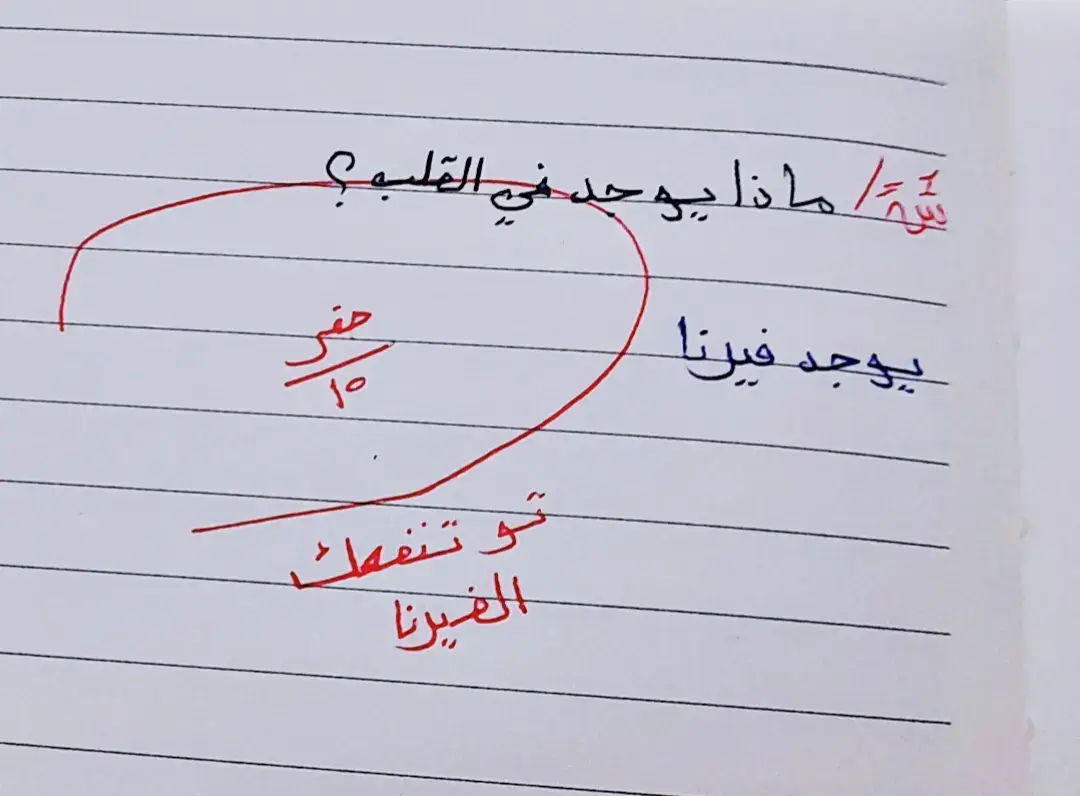 س1=/ ماذا يوجد في القلب ؟
يوجد فيرنا
صفر
١٥
تو تنفعك
الفيرنا